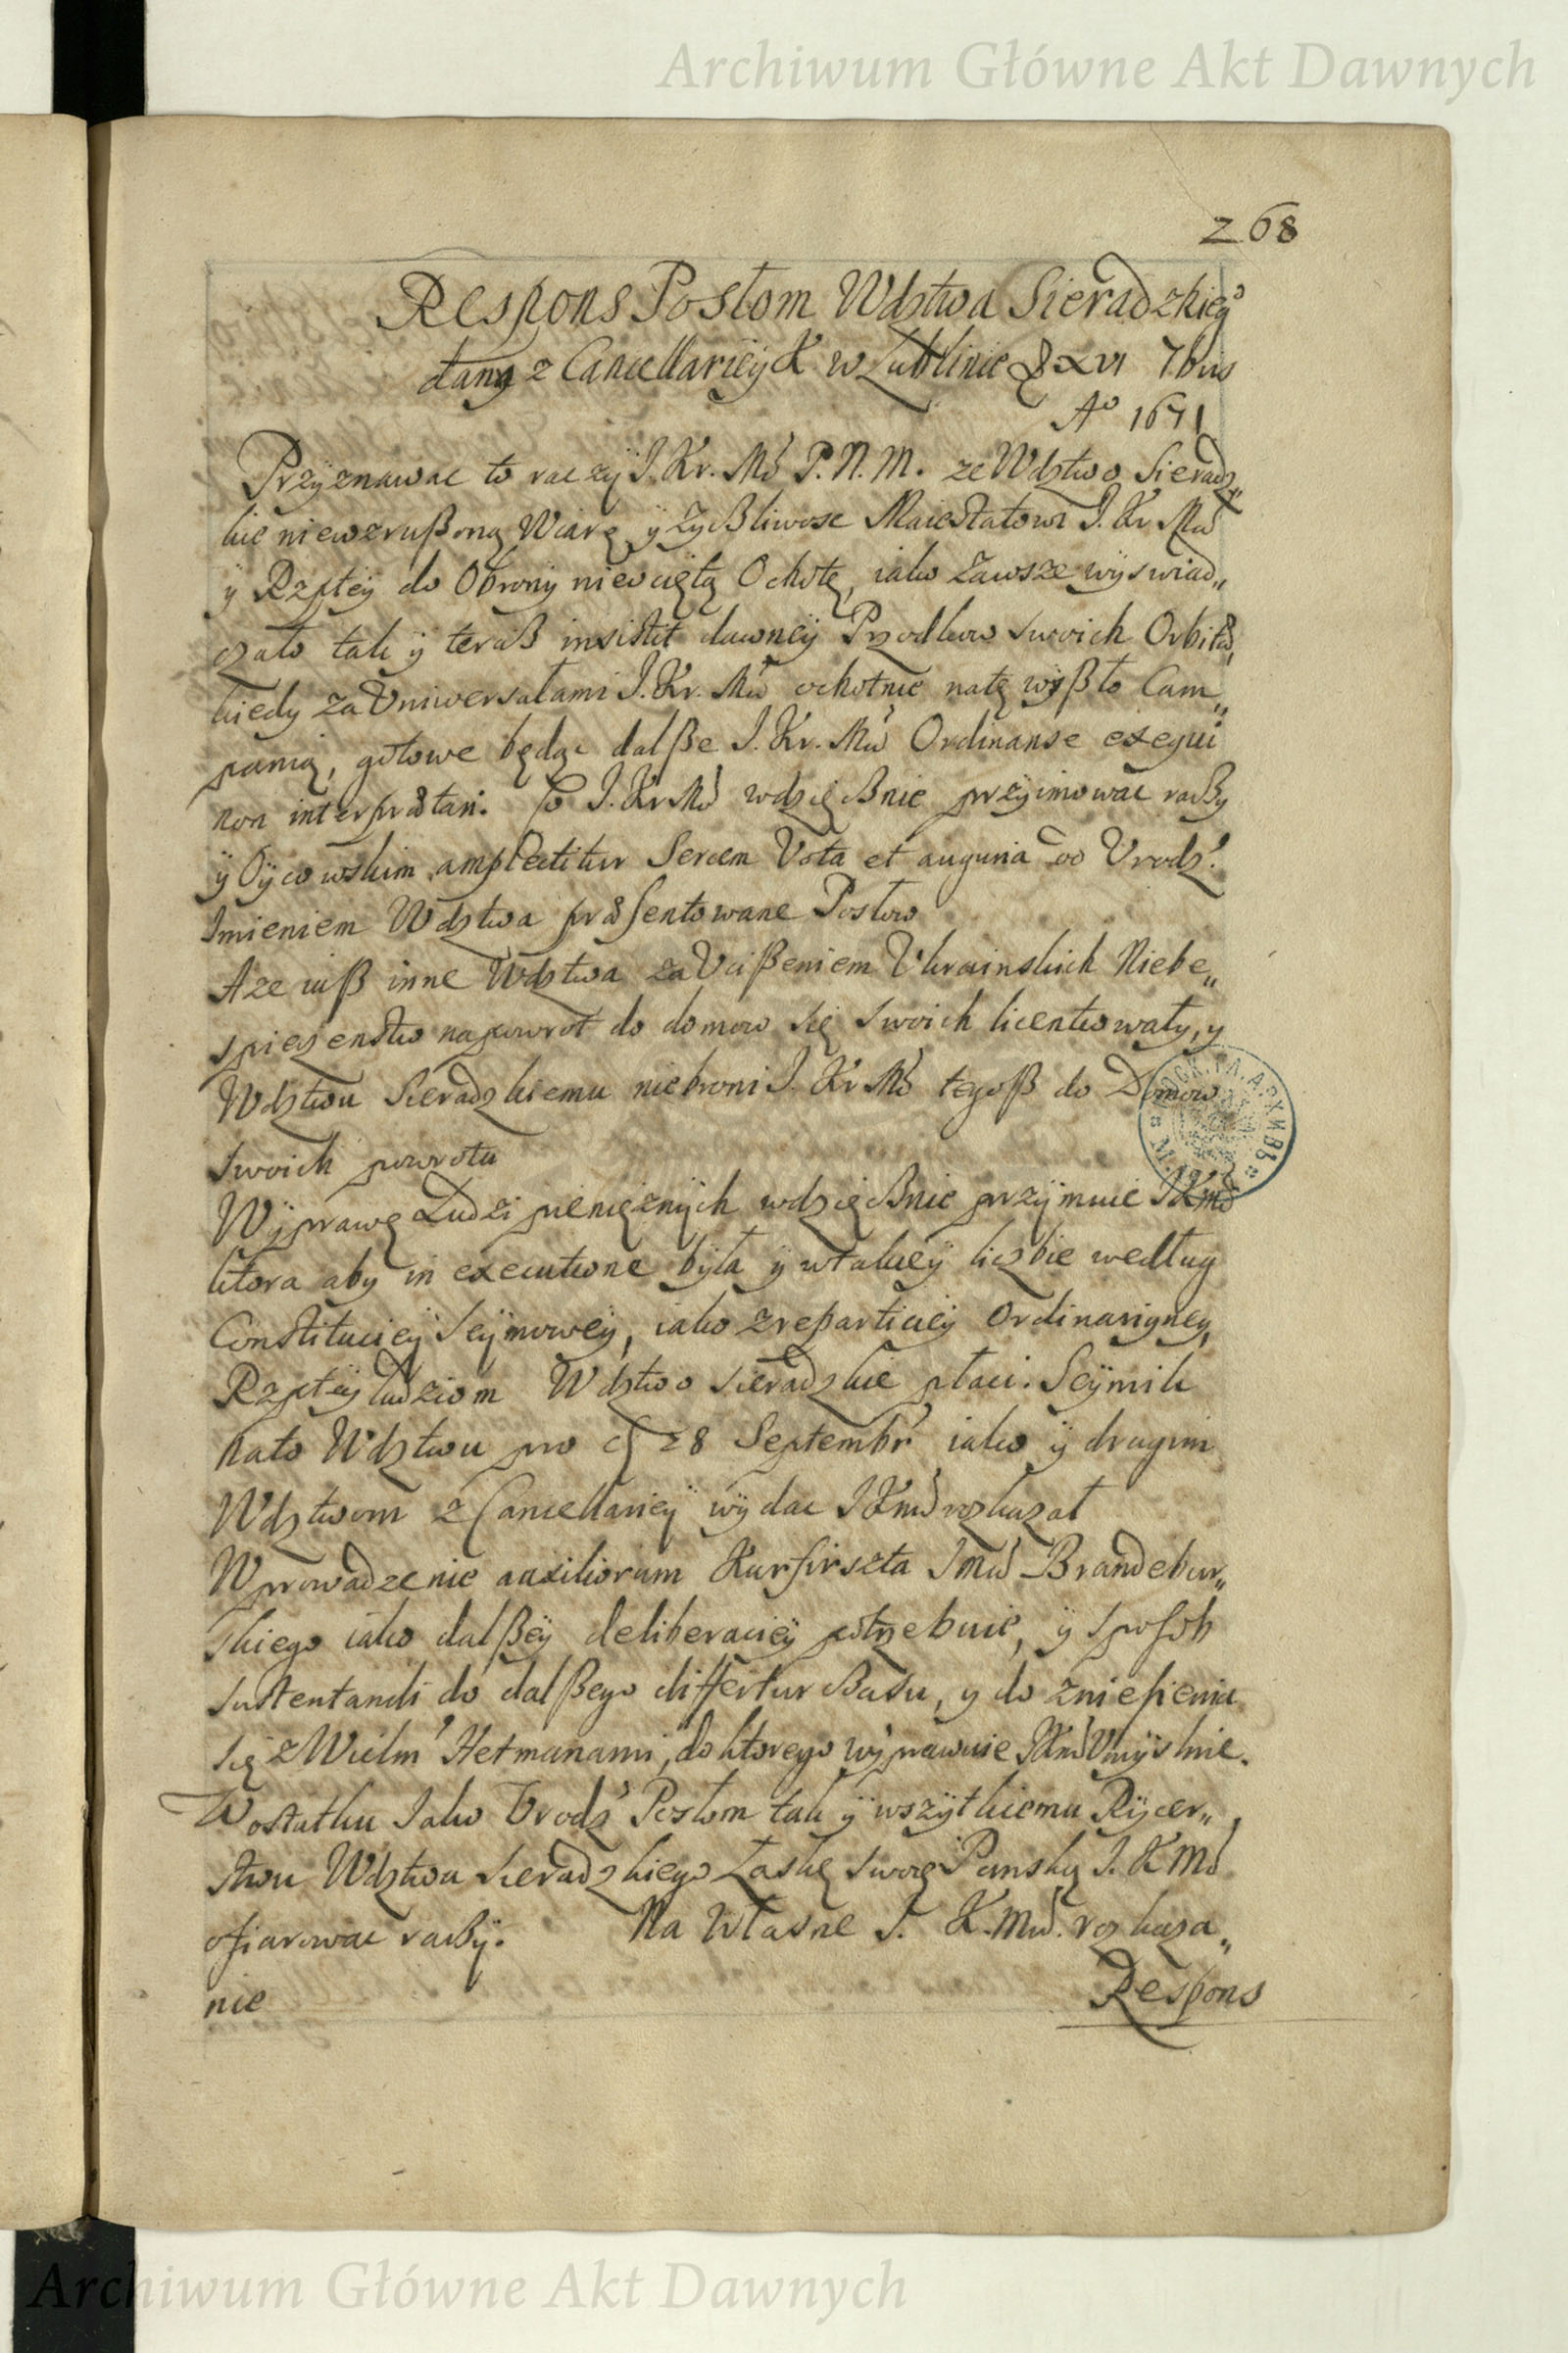 Archiwum Główne Akt Dawnych
268
Respons Posłom Wdztwa Sieradzkieg°
dany z Cancellariey K w Lublinie XVI 7bris
A° 1671
Przÿznawac to raczÿ J. Kr. Mć P. N. M. ze Wdztwo Sieradz„
kie niewzrußoną Wiarę ÿ Zycßliwosc Maiestatowi J. Kr Mci
ÿ Rzptey do Obrony nieociętą Ochotę, iako zawsze wyswiad„
czało tak ÿ teraß insistit dawneÿ Przodkow swoich Orbitæ,
kiedy za Vniwersałami J. Kr. Mci ochotnie natę wÿßło Cam„
panią, gotowe będąc dalße J. Kr. Mci Ordinanse exequi
non interprætari. Co J. Kr Mć wdzięcßnie przÿimowac racßy
ÿ Oÿcowskim amplectitur Sercem Vota et auguria od Vrodz.
Imieniem Wdztwa præsentowane Posłow
Aze iuß inne Wdztwa za Vcißeniem Vkrainskich Niebe„
spieczenstw napowrot do domow się swoich licentiowały, y
Wdztwu Sieradzkiemu niebroni J. Kr Mć tegoß do Domow
swoich powrotu
Wÿprawę Ludzi pienięznÿch wdzięcßnie przÿimuie JKmć
ktora aby in executione była ÿ wtakieÿ liczbie według
Constituciey Seÿmoweÿ, iako z reparticieÿ Ordinarÿney,
Rzpteÿ ludziom Wdztwo Sieradzkie płaci. Seÿmik
nato Wdztwu pro 28 Septembr iako ÿ drugim
Wdztwom z Cancellarieÿ wÿdac JKmć rozkazał
Wprowadzenie auxiliorum Kurfirszta Jmci Brandebur„
skiego iako dalßeÿ deliberacieÿ potrzebuie, ÿ sposob
sustentandi do dalßego differtur cßasu, y do zniesienia
się z Wielm Hetmanami, do ktorego wÿprawuie JKmć Vmÿslnie.
W ostatku Iako Vrodz Posłom tak ÿ wszÿtkiemu Rÿcer„
stwu Wdztwa Sieradzkiego Łaskę swoię Panską J. K Mć
ofiarowac racßÿ. Na Własne J. K. Mci. rozkaza„
nie
Respons
Archiwum Główne Akt Dawnych